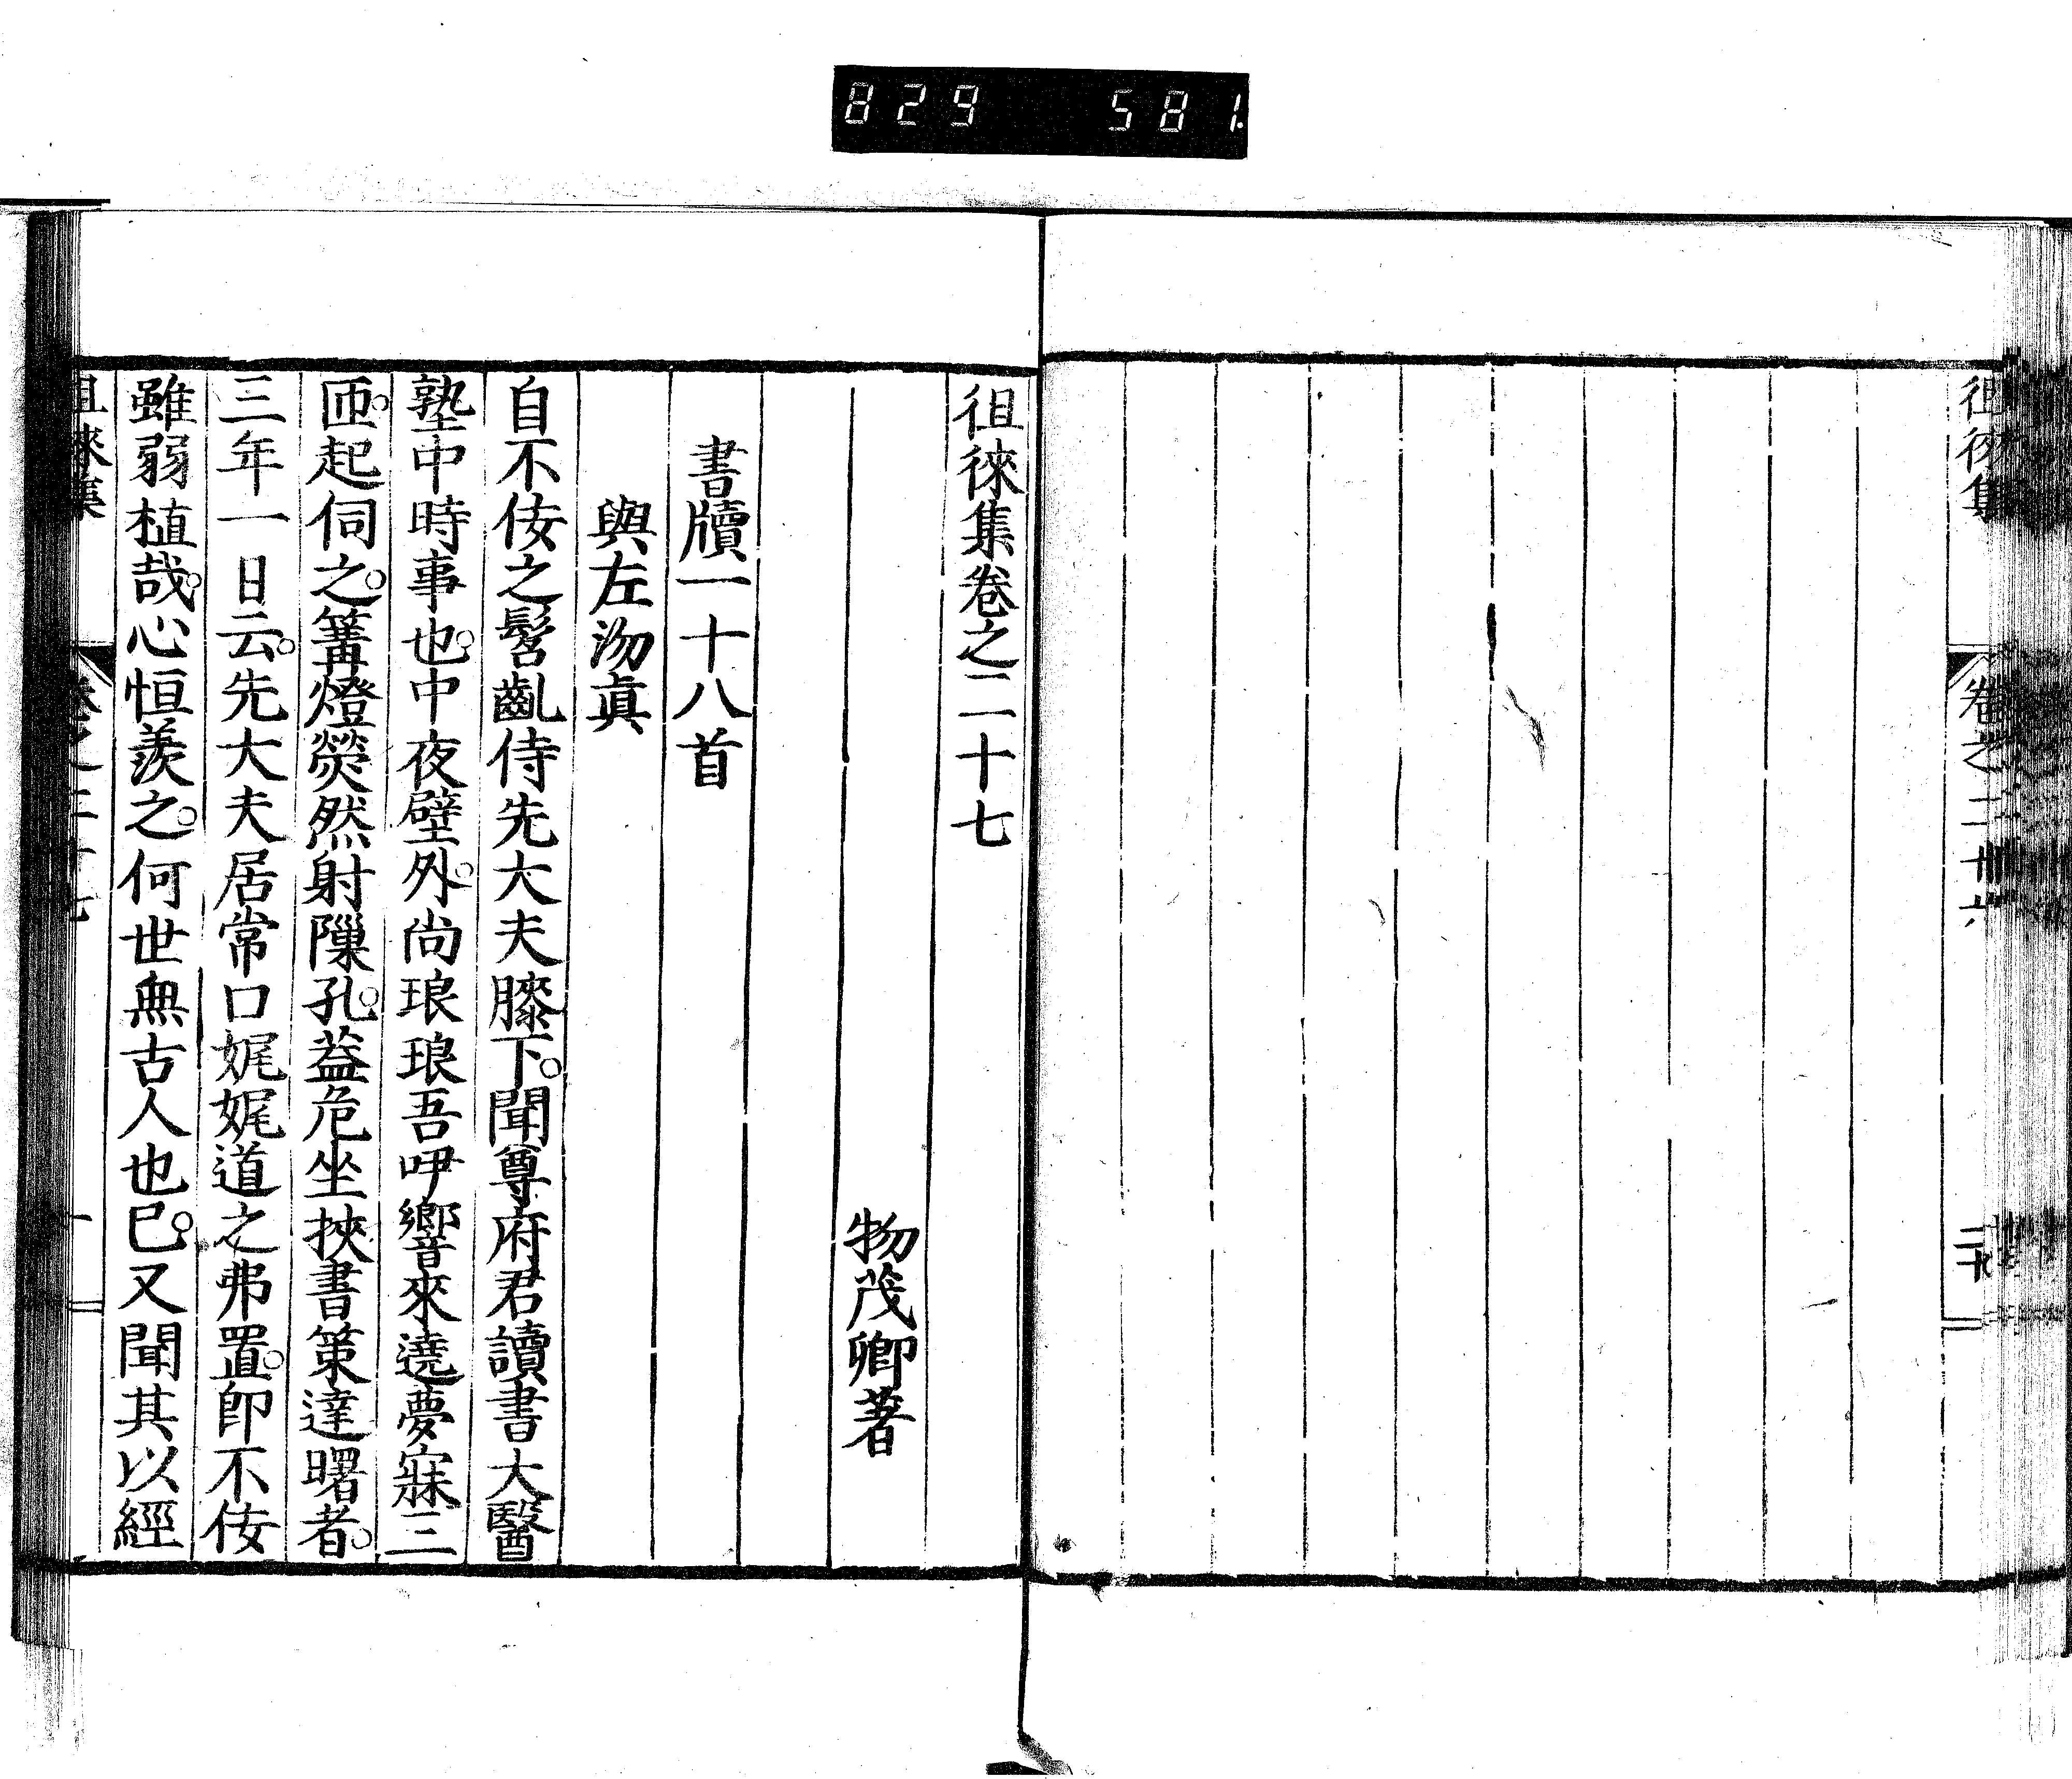 829 581.
徂徠集
卷之二十六
二十九
徂徠集卷之二十七
物茂卿著
書牘一十八首
與左沕眞
自不佞之髫齔侍先大夫膝下。聞尊府君讀書大醫
塾中時事也。中夜壁外。尚琅琅吾吚響來遶夢寐三
匝。起伺之。篝燈熒然射隟孔。葢危坐挾書策達曙者。
三年一日云。先大夫居常口娓娓道之弗置。卽不佞
雖弱植哉。心恒羨之。何世無古人也已。又聞其以經
徂徠集
卷之二十七
一